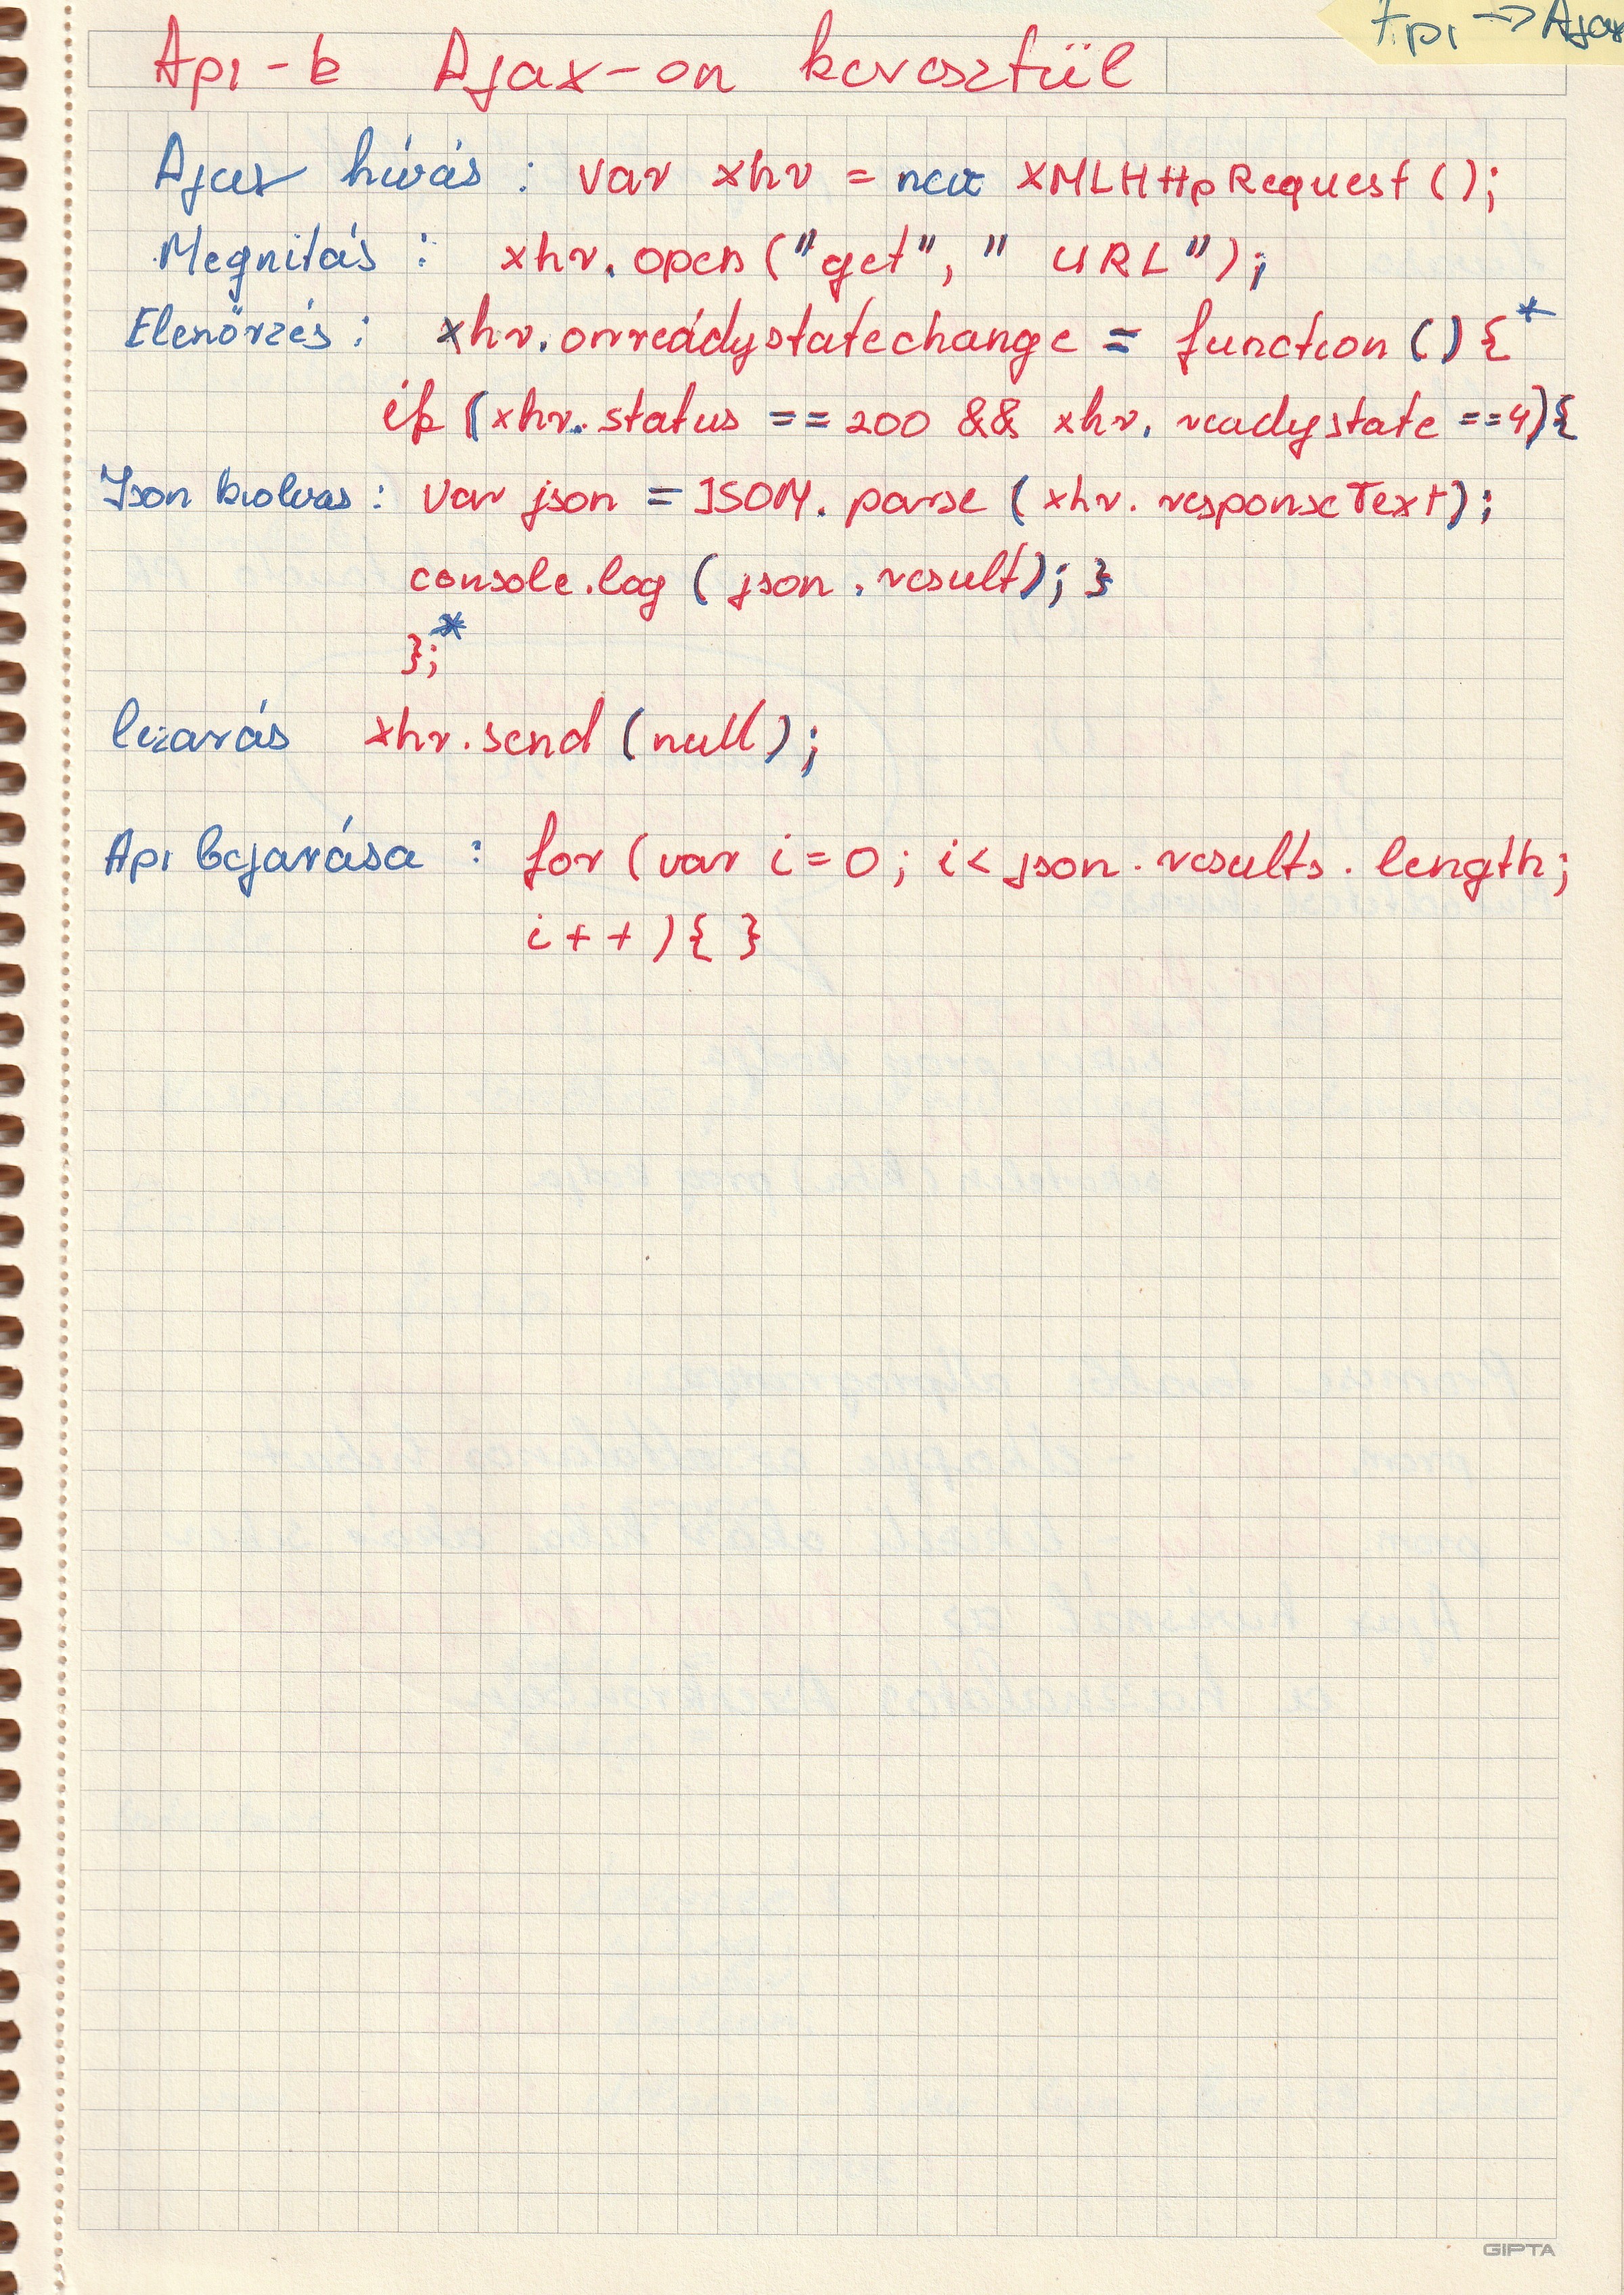 Api → Ajax
Api-k Ajax-on keresztül
Ajax hívás : var xhr = new XMLHttpRequest ();
Megnitás : xhr.open ("get", " URL ");
Elenőrzés : xhr.onreádystatechange = function () { *
if (xhr.status == 200 && xhr.readystate == 4) {
Json kiolvas : var json = JSON.parse (xhr.responseText);
console.log (json.result); }
}; *
lezarás xhr.send (null);
Api bejarása : for (var i = 0 ; i < json.results.length ;
i++ ) { }
GIPTA